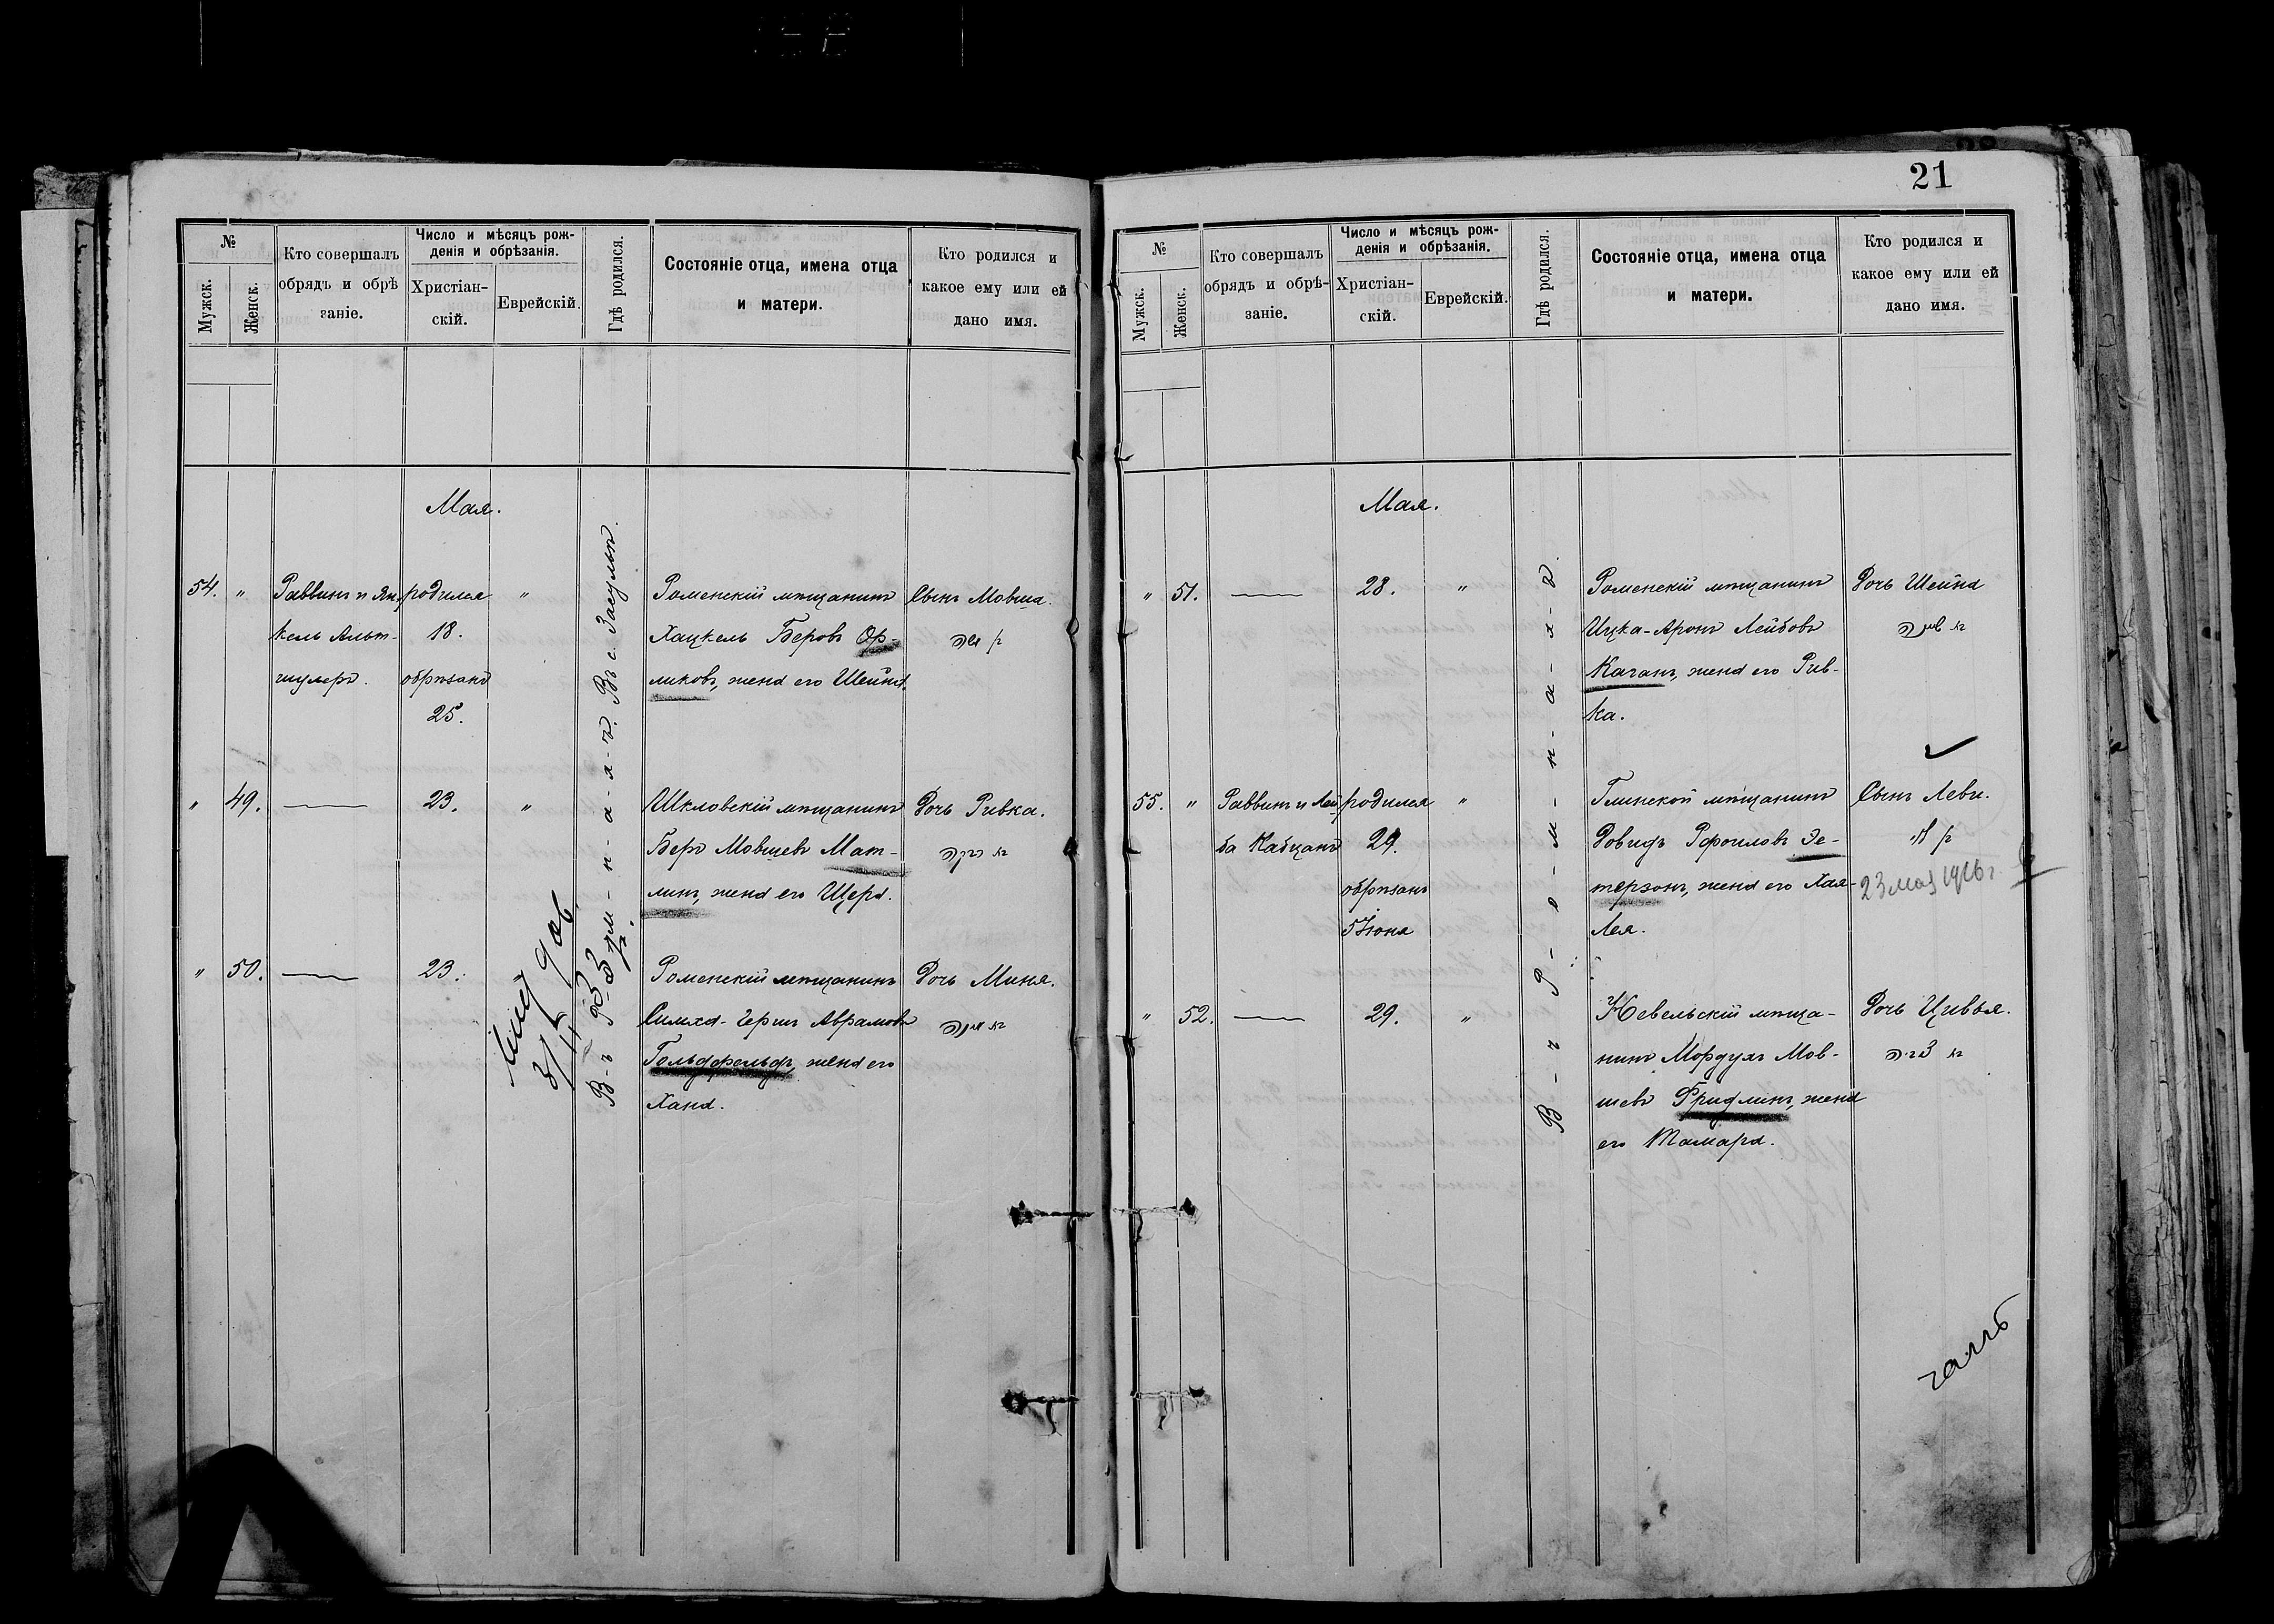 №
Мужск.
Женск.
Кто совершалъ
обрядъ и обрѣ
заніе.
Число и мѣсяцъ рож-
денія и обрѣзанія.
Христіан-
скій.
Еврейскій.
Гдѣ родился.
Состояніе отца, имена отца
и матери.
Кто родился и
какое ему или ей
дано имя.
Мая.
54. "
Раввинъ и Ян-
кель Альт-
шулеръ.
родился
18.
обрѣзанъ
25.
"
Въ с. Засульѣ.
Роменскій мѣщанинъ
Хацкель Беровъ Ор-
ликовъ, жена его Шейна.
Сынъ Мовша.
" 49.
23.
"
Шкловскій мѣщанинъ
Беръ Мовшевъ Мат-
линъ, жена его Щера.
Дочь Ривка.
בת רבקה
" 50.
23.
В-ъ Р-о-м-н-а-х-ъ.
Роменскій мѣщанинъ
Симха-Гершъ Аврамовъ
Гольдфельдъ, жена его
Хана.
Дочь Минья.
21
№
Мужск.
Женск.
Кто совершалъ
обрядъ и обрѣ-
заніе.
Число и мѣсяцъ рож-
денія и обрѣзанія.
Христіан-
скій.
Еврейскій.
Гдѣ родился.
Состояніе отца, имена отца
и матери.
Кто родился и
какое ему или ей
дано имя.
Мая.
" 51.
28.
"
В-ъ Р-о-м-н-а-х-ъ.
Роменскій мѣщанинъ
Ицка-Аронъ Лейбовъ
Каганъ, жена его Рив-
ка.
Дочь Шейна
55. "
Раввинъ и Лей-
ба Кабцанъ
родился
29.
обрѣзанъ
5 Іюня
"
Глинской мѣщанинъ
Довидъ Рфоиловъ Зе-
терзонъ, жена его Хая-
Лея.
Сынъ Леви.
בן לוי
23 мая 1916 г.
" 52.
29.
"
Невельскій мѣща-
нинъ Мордухъ Мов-
шевъ Фридлинъ, жена
его Тамара.
Дочь Цивья.
בת צביה